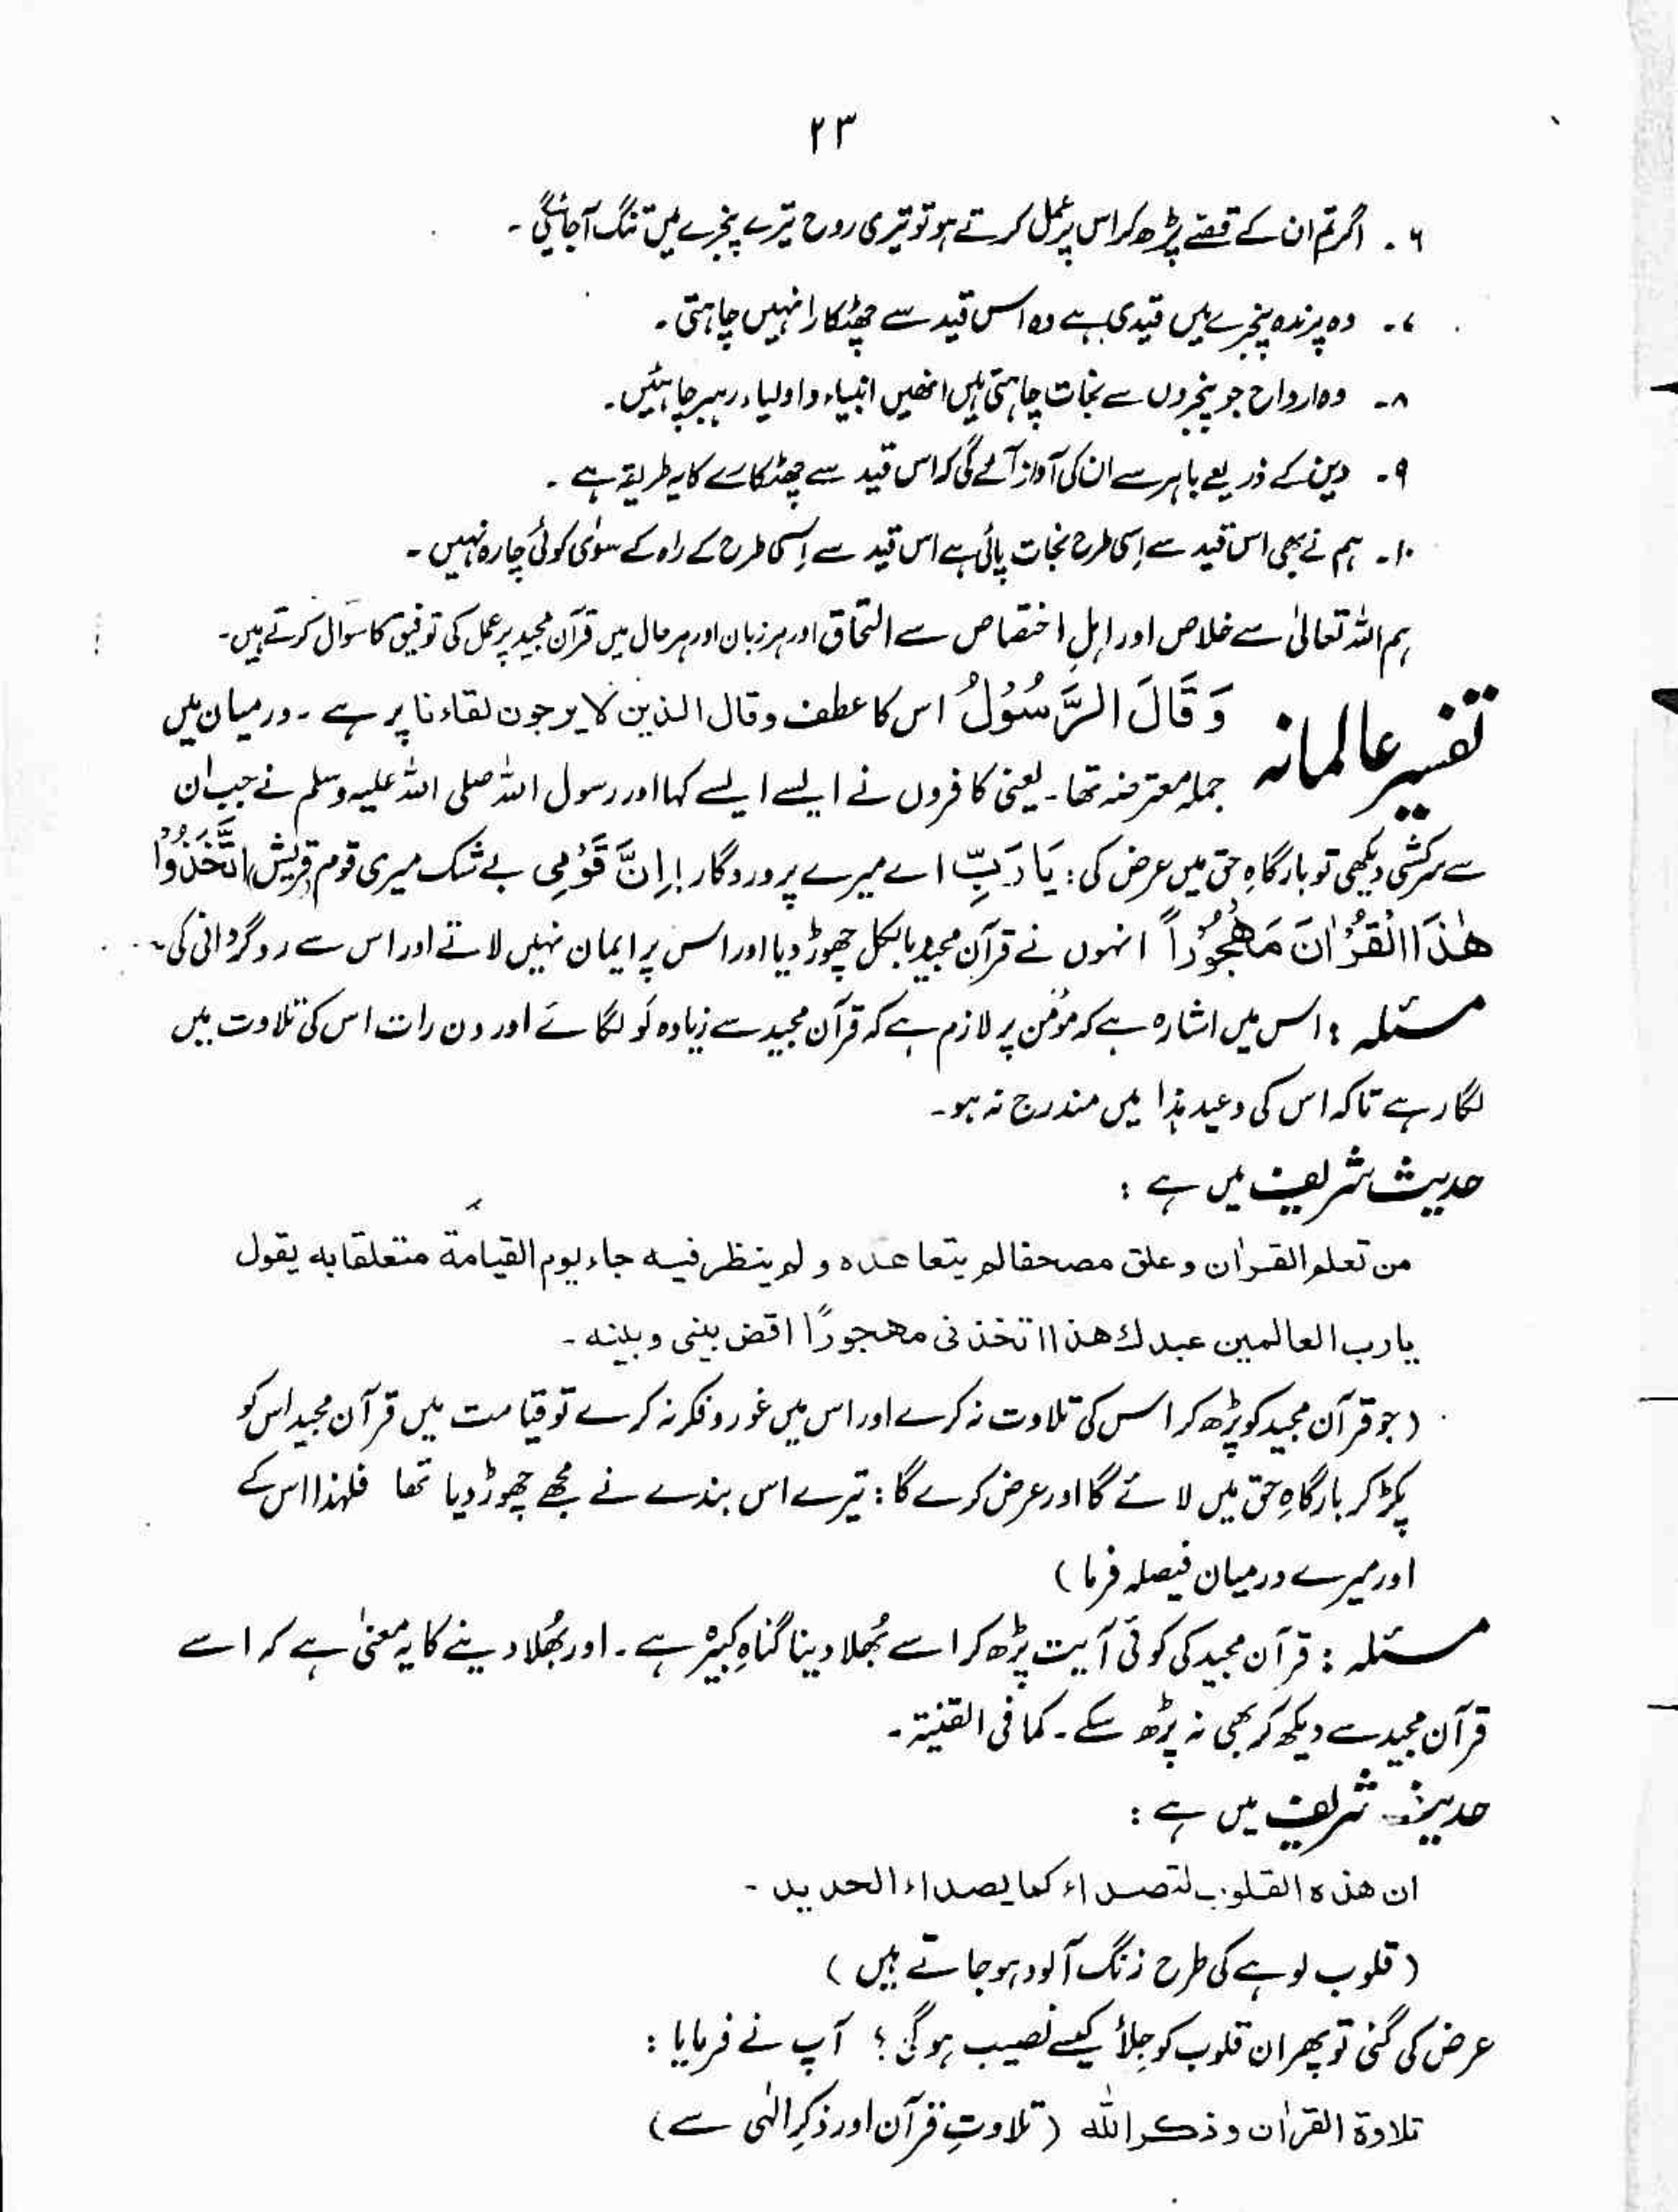 ۲۳
۶ ۔ اگر تم ان کے قصے پڑھ کر اس پر عمل کرتے ہو تو تیری روح تیرے پنجرے میں تنگ آجائیگی ۔
۷ ۔ وہ پرندہ پنجرے میں قیدی ہے وہ اس قید سے چھٹکارا نہیں چاہتی ۔
۸ ۔ وہ ارواح جو پنجروں سے نجات چاہتی ہیں انھیں انبیاء و اولیاء رہبر چاہئیں ۔
۹ ۔ دین کے ذریعے باہر سے ان کی آواز آئے گی کہ اس قید سے چھٹکارے کا یہ طریقہ ہے ۔
۱۰ ۔ ہم نے بھی اس قید سے اِسی طرح نجات پائی ہے اس قید سے اِسی طرح کے راہ کے سوٰی کوئی چارہ نہیں ۔
ہم اللہ تعالیٰ سے خلاص اور اہلِ اختصاص سے التحاق اور ہر زبان اور ہر حال میں قرآن مجید پر عمل کی توفیق کا سوال کرتے ہیں ۔
تفسیر عالمانہ وَقَالَ الرَّسُوْلُ اس کا عطف وقال الذین لا یرجون لقاءنا پر ہے ۔ درمیان میں
جملہ معترضہ تھا ۔ یعنی کافروں نے ایسے ایسے کہا اور رسول اللہ صلی اللہ علیہ وسلم نے جب ان
سے سرکشی دیکھی تو بارگاہِ حق میں عرض کی : یَا رَبِّ اے میرے پروردگار ! اِنَّ قَوْمِی بے شک میری قوم (قریش) اتَّخَذُوْا
ھٰذَا الْقُرْاٰنَ مَھْجُوْرًا انہوں نے قرآن مجید بالکل چھوڑ دیا اور اس پر ایمان نہیں لاتے اور اس سے روگردانی کی ۔
مسئلہ : اس میں اشارہ ہے کہ مؤمن پر لازم ہے کہ قرآن مجید سے زیادہ لَو لگائے اور دن رات اس کی تلاوت میں
لگا رہے تاکہ اس کی وعید ہٰذا میں مندرج نہ ہو ۔
حدیث شریف میں ہے :
من تعلم القراٰن وعلق مصحفا لم یتعاھدہ و لم ینظر فیہ جاء یوم القیامة متعلقا بہ یقول
یارب العالمین عبدك ھذا اتخذنی مھجورًا اقض بینی و بینه ۔
(جو قرآن مجید کو پڑھ کر اس کی تلاوت نہ کرے اور اس میں غور و فکر نہ کرے تو قیامت میں قرآن مجید اس کو
پکڑ کر بارگاہِ حق میں لائے گا اور عرض کرے گا : تیرے اس بندے نے مجھے چھوڑ دیا تھا فلہٰذا اس کے
اور میرے درمیان فیصلہ فرما )
مسئلہ : قرآن مجید کی کوئی آیت پڑھ کر اسے بُھلا دینا گناہِ کبیرہ ہے ۔ اور بُھلا دینے کا یہ معنیٰ ہے کہ اسے
قرآن مجید سے دیکھ کر بھی نہ پڑھ سکے ۔ کما فی القنیۃ ۔
حدیث شریف میں ہے :
ان ھذہ القلوب لتصداء کما یصداء الحدید ۔
( قلوب لوہے کی طرح زنگ آلود ہو جاتے ہیں )
عرض کی گئی تو پھر ان قلوب کو جِلأ کیسے نصیب ہو گی ؟ آپ نے فرمایا :
تلاوۃ القراٰن و ذکر اللّٰہ ( تلاوتِ قرآن اور ذکرِ الٰہی سے )